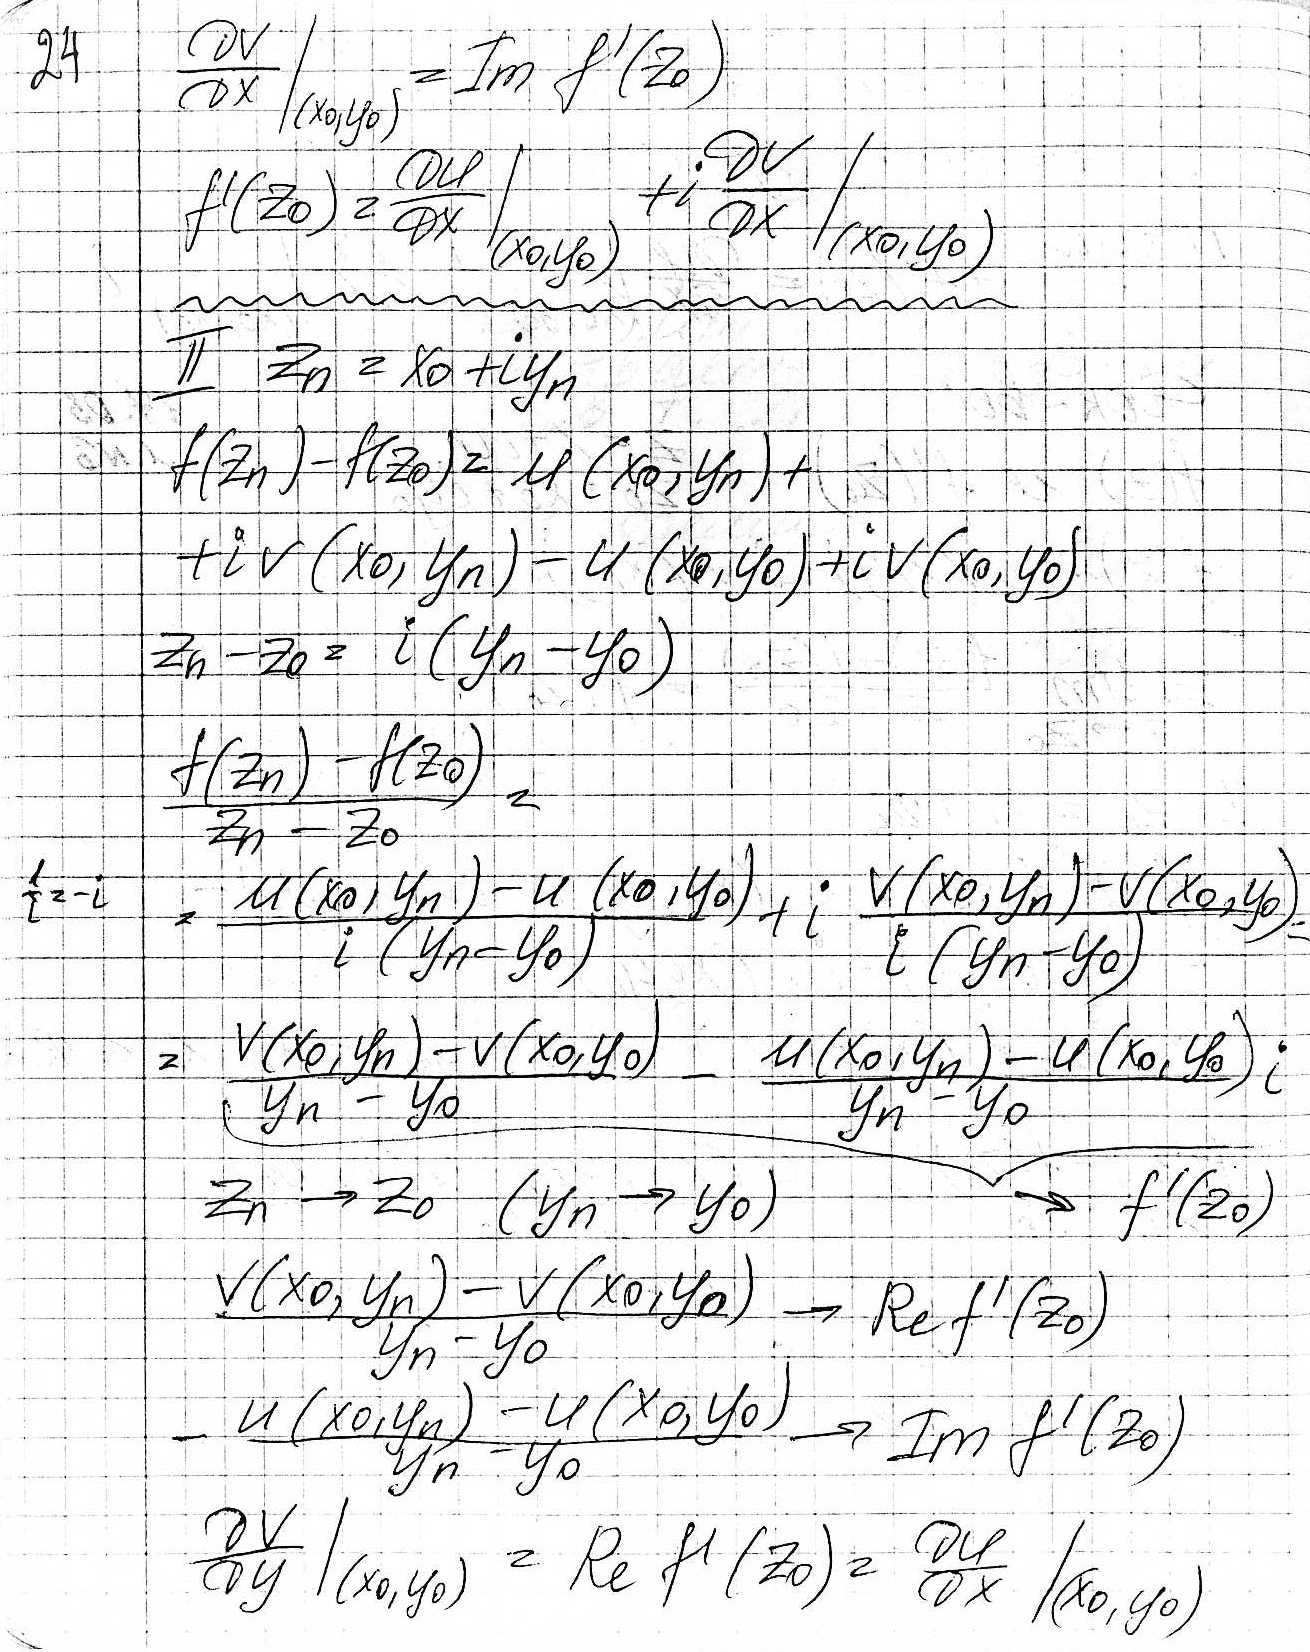 24
∂V/∂X |(x₀,y₀) = Im f'(z₀)
f'(z₀) = ∂U/∂X |(x₀,y₀) + i ∂V/∂X |(x₀,y₀)
II zₙ = x₀ + iyₙ
f(zₙ) - f(z₀) = u(x₀,yₙ) +
+ iv(x₀,yₙ) - u(x₀,y₀) + iv(x₀,y₀)
zₙ - z₀ = i(yₙ - y₀)
(f(zₙ) - f(z₀))/(zₙ - z₀) =
1/i = -i
= (u(x₀,yₙ) - u(x₀,y₀))/(i(yₙ - y₀)) + i (v(x₀,yₙ) - v(x₀,y₀))/(i(yₙ - y₀)) =
= (v(x₀,yₙ) - v(x₀,y₀))/(yₙ - y₀) - (u(x₀,yₙ) - u(x₀,y₀))/(yₙ - y₀) i
zₙ → z₀ (yₙ → y₀) → f'(z₀)
(v(x₀,yₙ) - v(x₀,y₀))/(yₙ - y₀) → Re f'(z₀)
- (u(x₀,yₙ) - u(x₀,y₀))/(yₙ - y₀) → Im f'(z₀)
∂V/∂y |(x₀,y₀) = Re f'(z₀) = ∂U/∂X |(x₀,y₀)